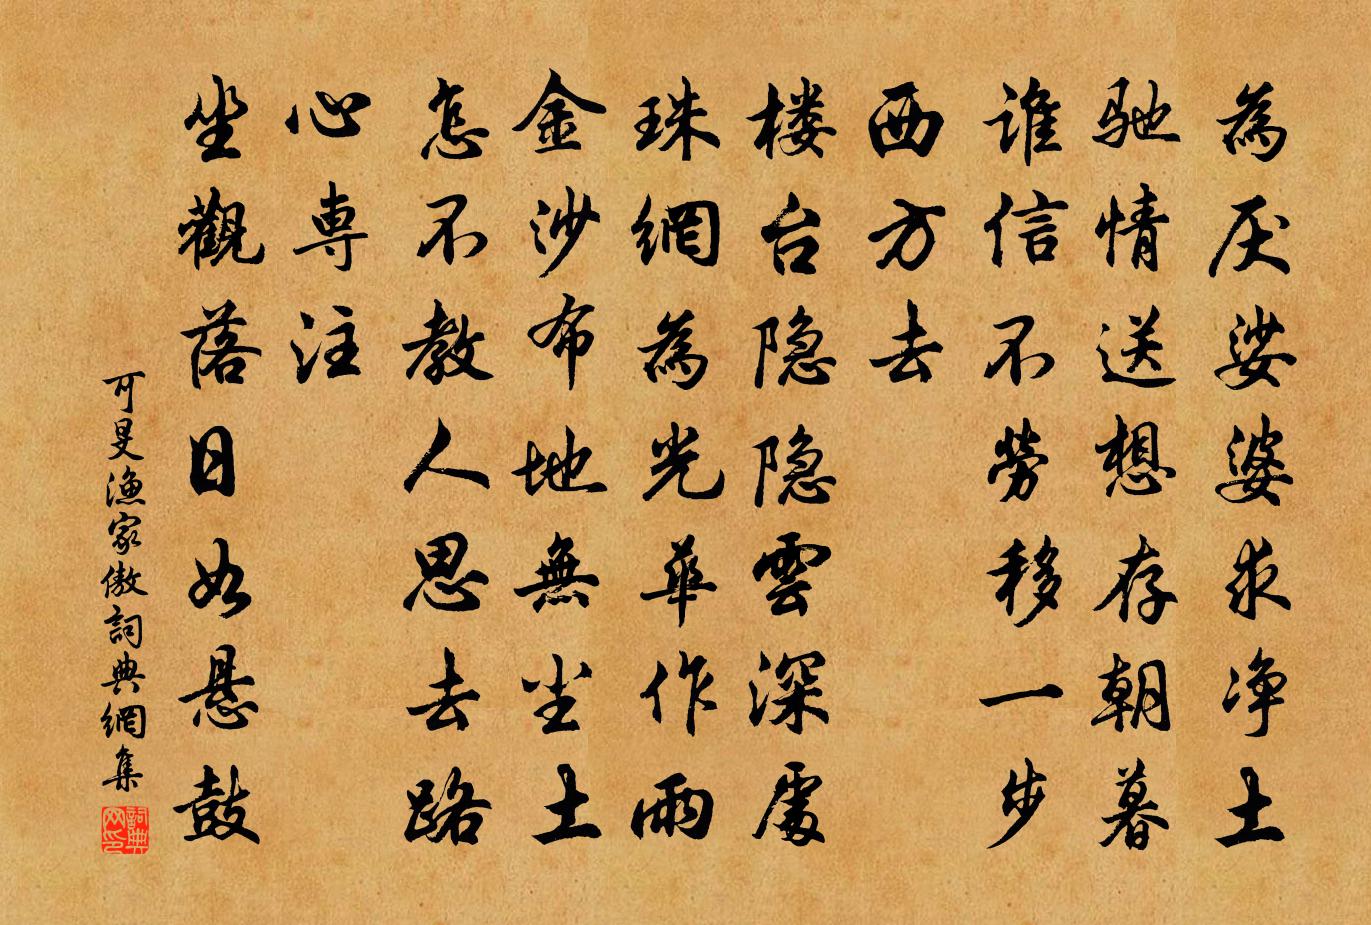 為厌娑婆求净土
驰情送想存朝暮
谁信不劳移一步
西方去
楼台隐隐雲深處
珠網為光華作雨
金沙布地無尘土
怎不教人思去路
心専注
坐觀落日如悬鼓
可旻漁家傲詞典網集
詞典网印